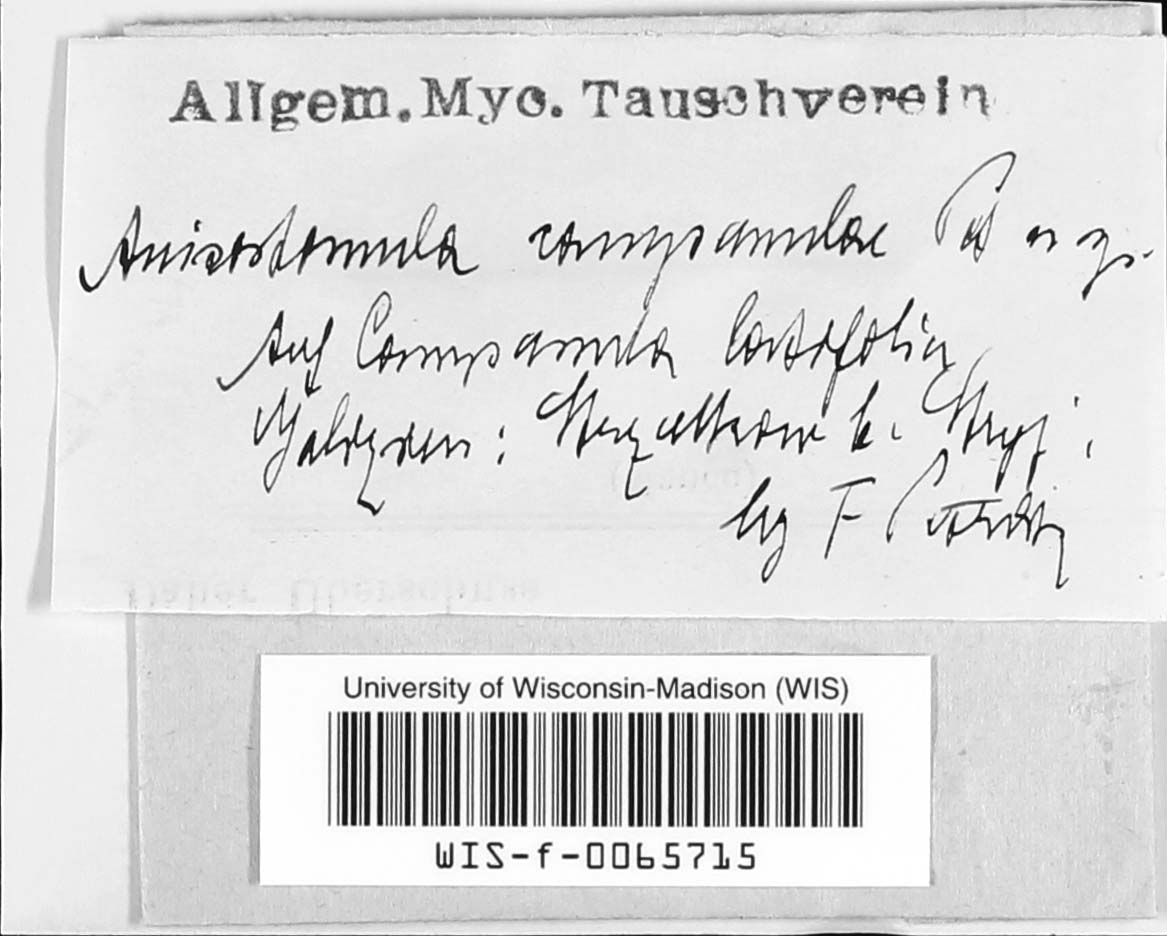 Allgem. Myc. Tauschverein
Anisostomula campanulae Pet n. gn.
Auf Campanula latifolia
Galizien: b. Stryj
leg F Petrak
University of Wisconsin-Madison (WIS)
WIS-f-0065715